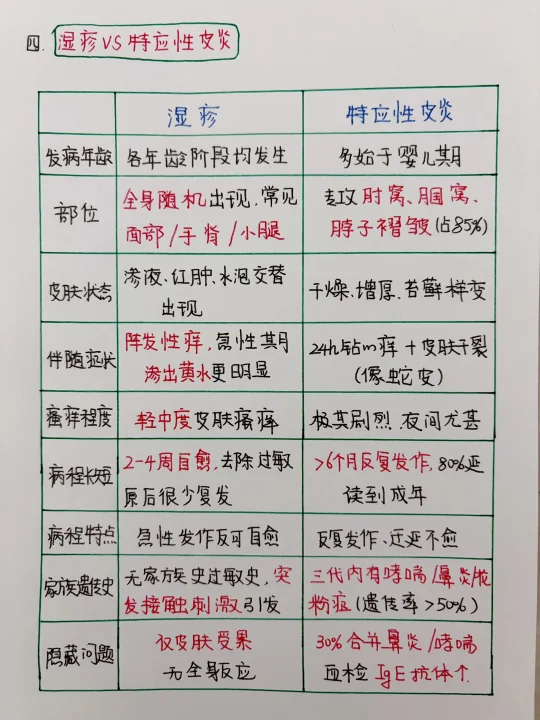 四. 湿疹VS特应性皮炎
湿疹 特应性皮炎
发病年龄 各年龄阶段均发生 多始于婴儿期
部位 全身随机出现,常见 专攻肘窝、腘窝、
面部/手背/小腿 脖子褶皱(占85%)
皮肤状态 渗液、红肿、水泡交替 干燥、增厚、苔藓样变
出现
伴随症状 阵发性痒,急性期 24h钻心痒+皮肤干裂
渗出黄水更明显 (像蛇皮)
瘙痒程度 轻中度皮肤瘙痒 极其剧烈,夜间尤甚
病程长短 2-4周自愈,去除过敏 >6个月反复发作,80%延
原后很少复发 读到成年
病程特点 急性发作反可自愈 反复发作、迁延不愈
家族遗传史 无家族史过敏史,突 三代内有哮喘/鼻炎/花
发接触刺激引发 粉症(遗传率>50%)
隐藏问题 仅皮肤受累 30%合并鼻炎/哮喘
无全身反应 血检IgE抗体↑.